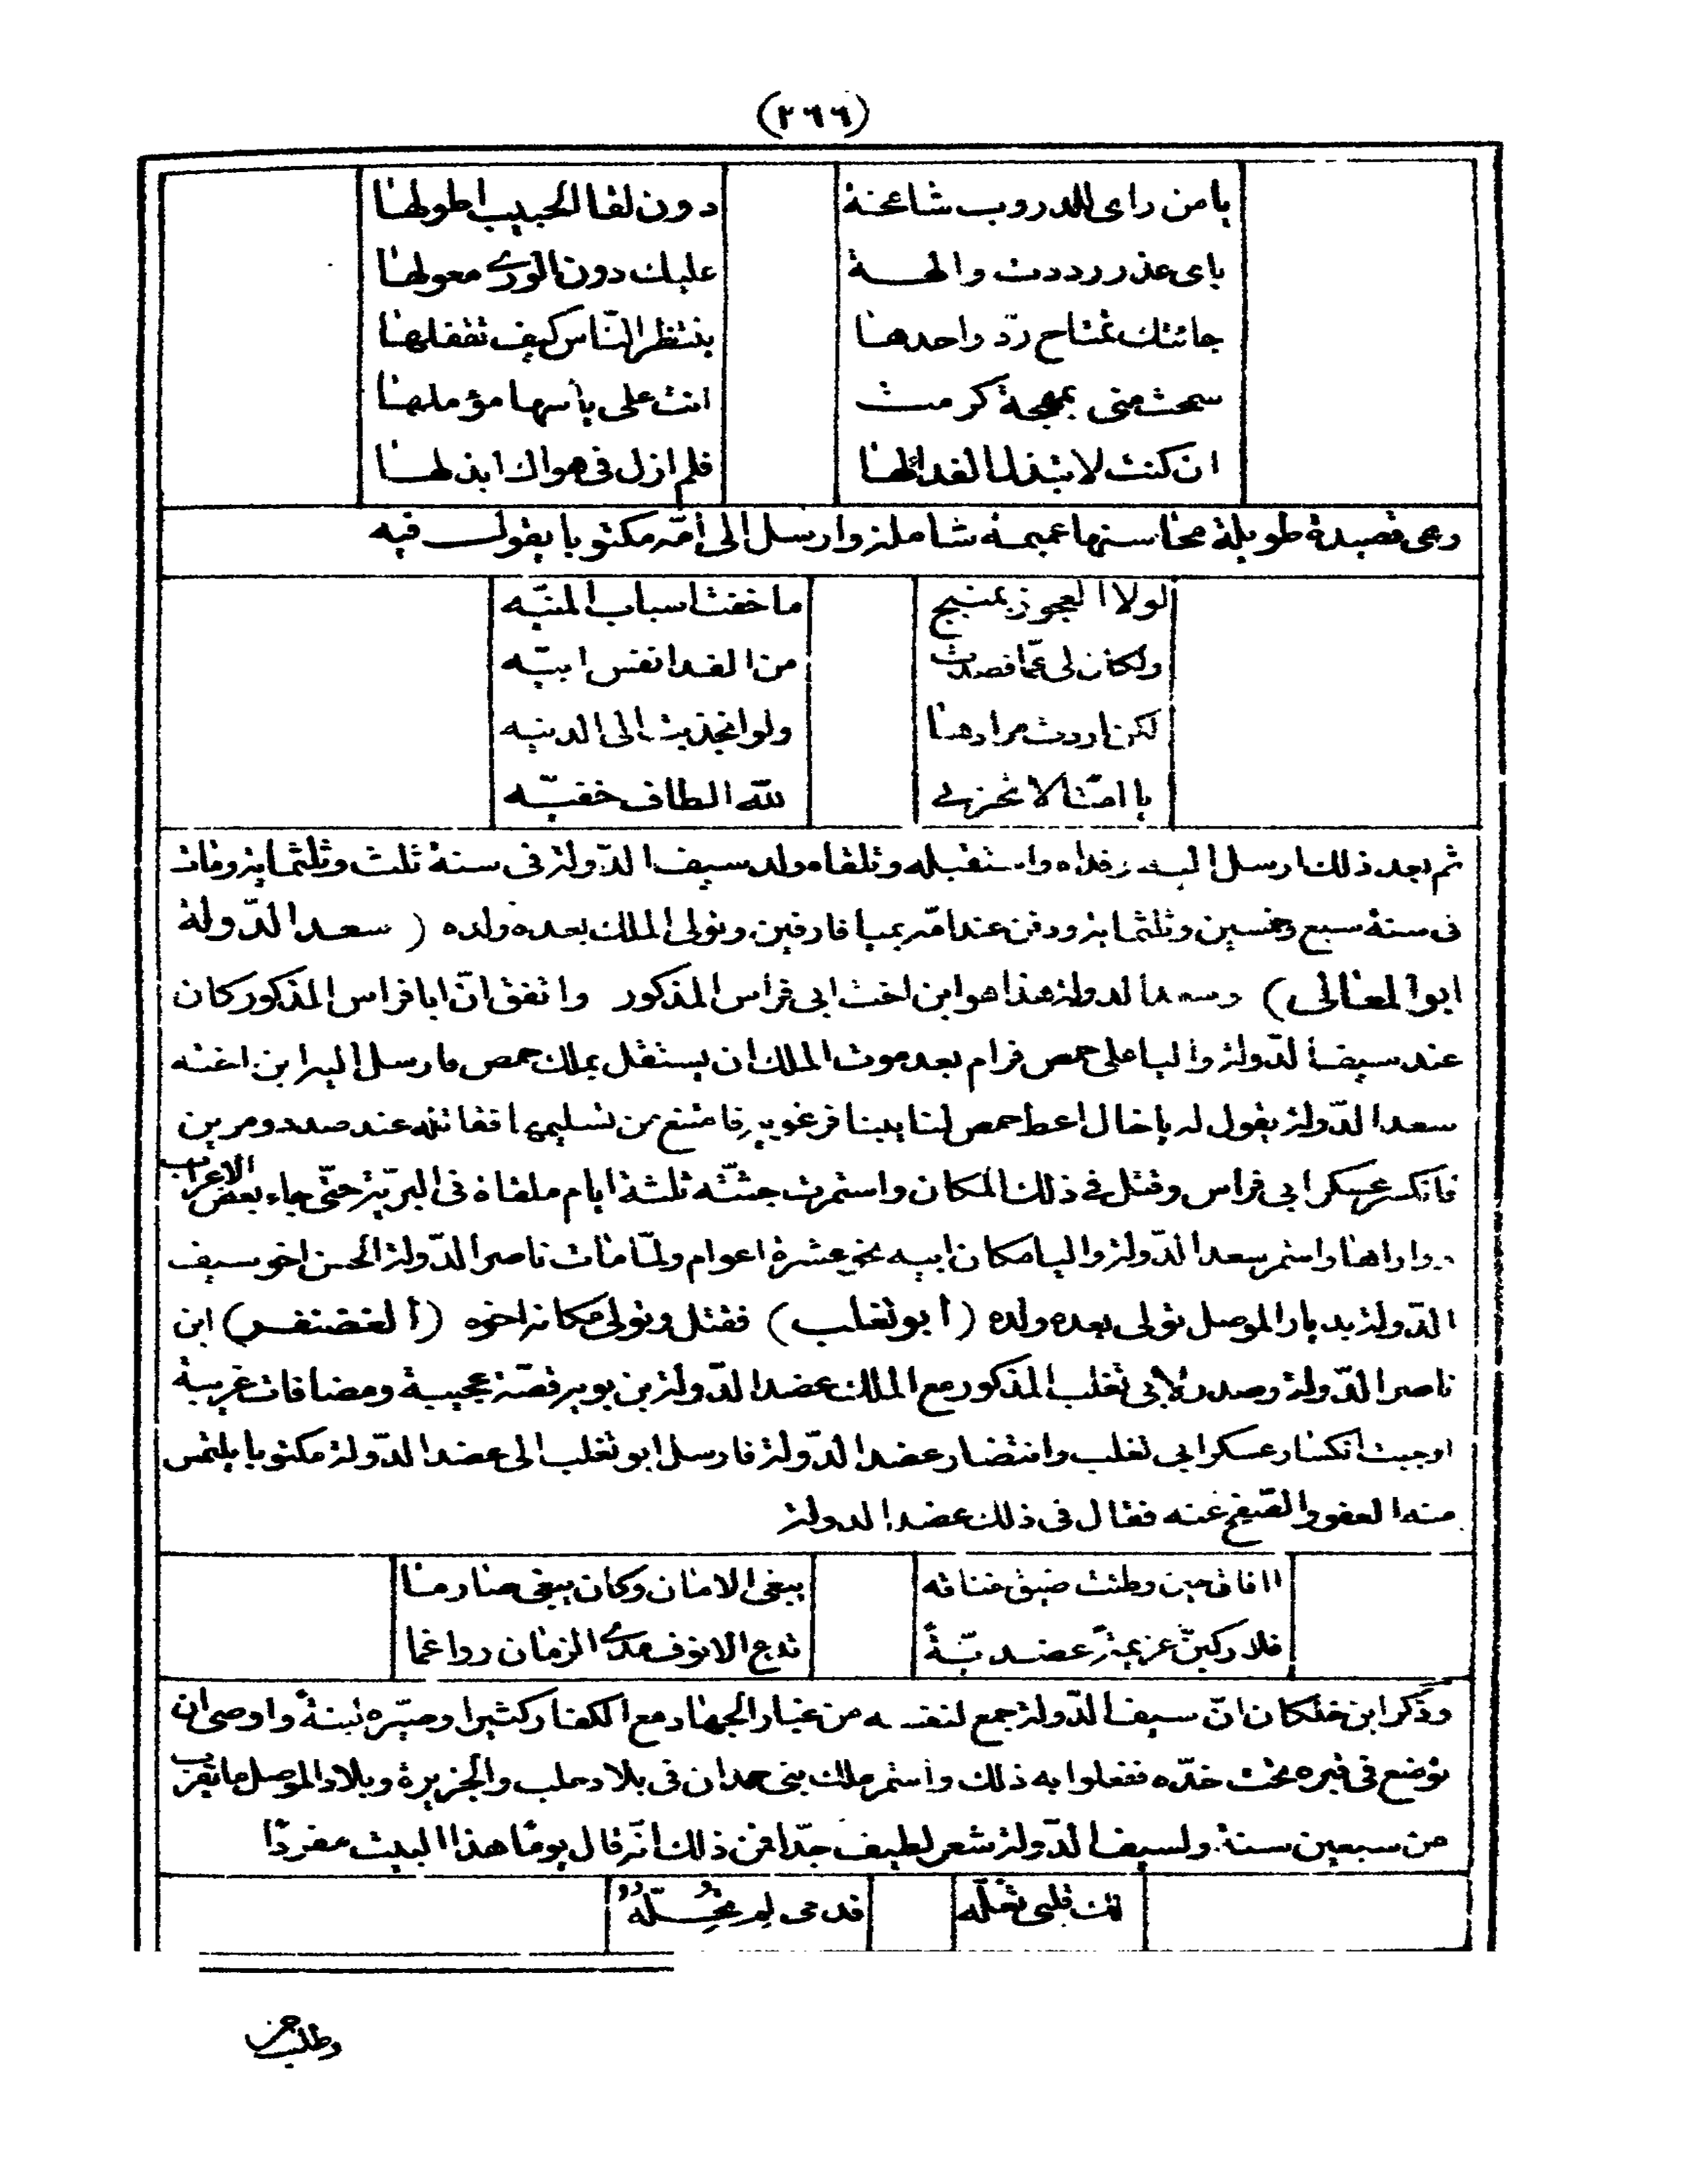 (٢٦٦)
يا من راى للدروب شامخة دون لقا الحبيب اطولها
باى عذر رددت والهة عليك دون الورى معولها
جائتك تمتاح ردّ واحدها ينتظر النّاس كيف تقفلها
سمحت منى بمهجة كرمت انت على يأسها مؤملها
ان كنت لا تبذل الفدا لها فلم ازل فى هواك ابذلها
وهى قصيدة طويلة محاسنها عميمة شاملة وارسل الى أمّه مكتوبا يقول فيه
لولا العجوز بمنبج ما خفت اسباب المنيّه
ولكان لى عمّا قصدت من الفدا نفس ابيّه
لكن اردت مرادها ولو انجذبت الى الدنيه
يا امّتا لا تحزنى للّه الطاف خفيّه
ثم بعد ذلك ارسل اليه وفداه واستقبله وتلقاه ولد سيف الدّولة فى سنة ثلث وثلثماية ومات
فى سنة سبع وخمسين وثلثماية ودفن عند امّه بميافارقين وتولى الملك بعده ولده (سعد الدّولة
ابو المعالى) وسعد الدولة هذا هو ابن اخت ابى فراس المذكور واتفق انّ ابا فراس المذكور كان
عند سيف الدّولة واليا على حمص فرام بعد موت الملك ان يستقل بملك حمص فارسل اليه ابن اخته
سعد الدّولة يقول له يا خال اعط حمص لنايبنا قرغويه فامتنع من تسليمها فقاتله عند صدد ومرين
فانكسر عسكر ابى فراس وقتل فى ذلك المكان واستمرت جثّته ثلثة ايام ملقاة فى البريّة حتّى جاء بعض الاعراب
وواراها واستمر سعد الدّولة واليا مكان ابيه نحو عشرة اعوام ولمّا مات ناصر الدّولة الحسن اخو سيف
الدّولة بديار الموصل تولى بعده ولده (أبو تغلب) فقتل وتولى مكانه اخوه (الغضنفر) ابن
ناصر الدّولة وصدر لأبى تغلب المذكور مع الملك عضد الدّولة بن بويه قصّة عجيبة ومضافات غريبة
اوجبت انكسار عسكر ابى تغلب وانتضار عضد الدّولة فارسل ابو تغلب الى عضد الدّولة مكتوبا يلتمس
منه العفو والصّفح عنه فقال فى ذلك عضد الدولة
اافاق حين وطئت ضيق خناقه يبغى الامان وكان يبغى صارما
فلاركبنّ عزيمة عضديّةً تدع الانوف مدى الزمان رواغما
وذكر ابن خلكان انّ سيف الدّولة جمع لنفسه من غبار الجهاد مع الكفار كثيرا وصيّره لبنةً واوصى ان
توضع فى قبره تحت خدّه ففعلوا به ذلك واستمر ملك بنى حمدان فى بلاد حلب والجزيرة وبلاد الموصل ما يقرب
من سبعين سنة ولسيف الدّولة شعر لطيف جدّا فمن ذلك انّه قال يومًا هذا البيت مفردًا
لك قلبى تعلّه فدمى لم تحلّه
وطلب من